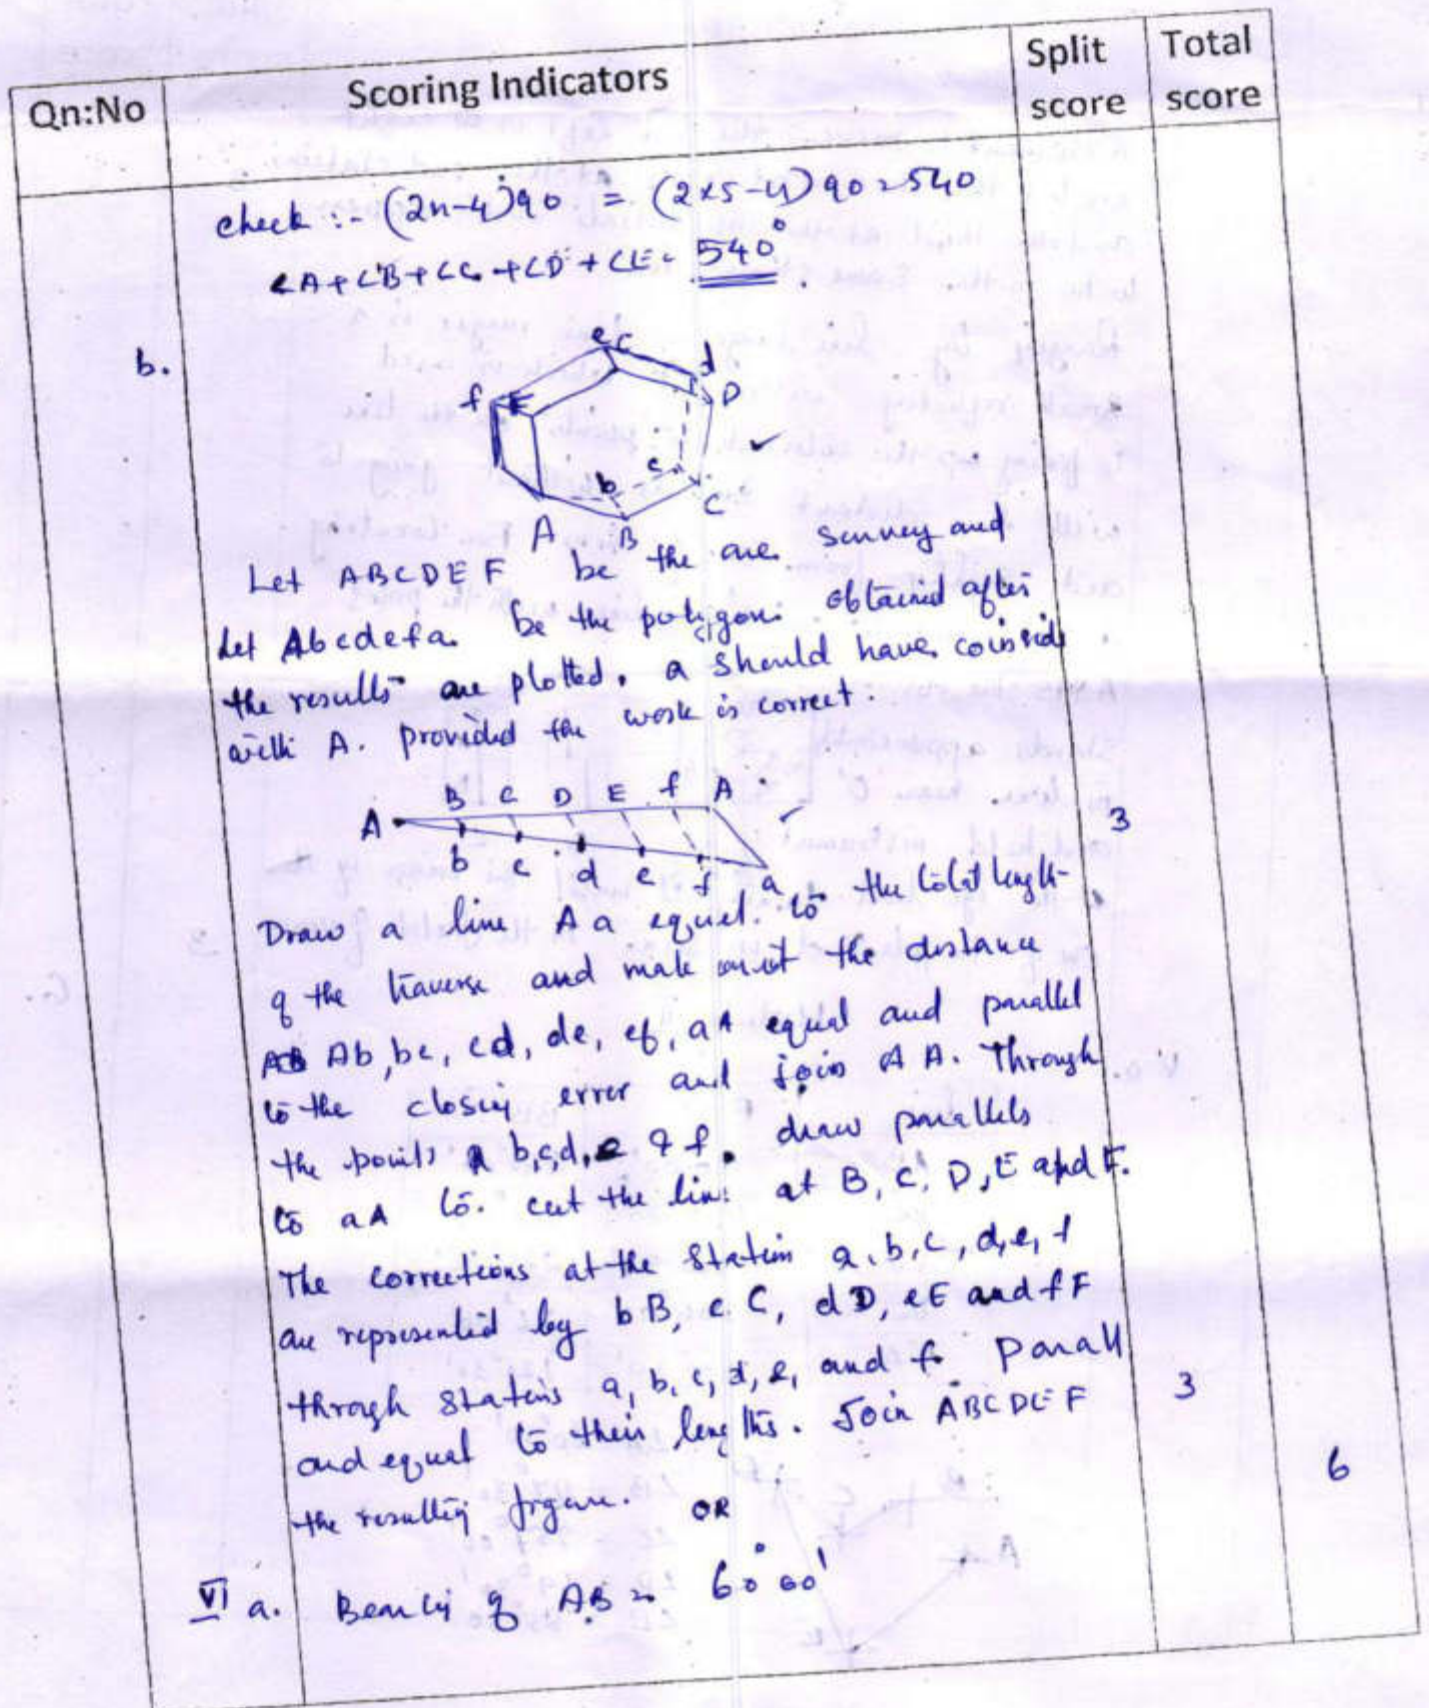 Qn:No Scoring Indicators Split score Total score
check :- (2n-4)90 = (2x5-4)90 = 540
∠A+∠B+∠C+∠D+∠E = 540°.
b.
e c d
f E D
b c C
A B
Let ABCDEF be the are survey and
Let Abcdefa be the polygon obtained after
the results are plotted. a should have coinside
with A. provided the work is correct.
A B C D E f A
b c d e f a
3
Draw a line Aa equal to the total length
of the traverse and mark out the distance
Ab, bc, cd, de, ef, aA equal and parallel
to the closing error and join A A. Through
the points b,c,d,e & f. draw parallels
to aA to. cut the line at B, C, D, E and F.
The corrections at the station a, b, c, d, e, f
are represented by bB, cC, dD, eE and fF
through stations a, b, c, d, e, and f. Parall
and equal to their lengths. Join ABCDEF 3
the resulting figure. 6
OR
VI a. Bearing of AB = 60°00'